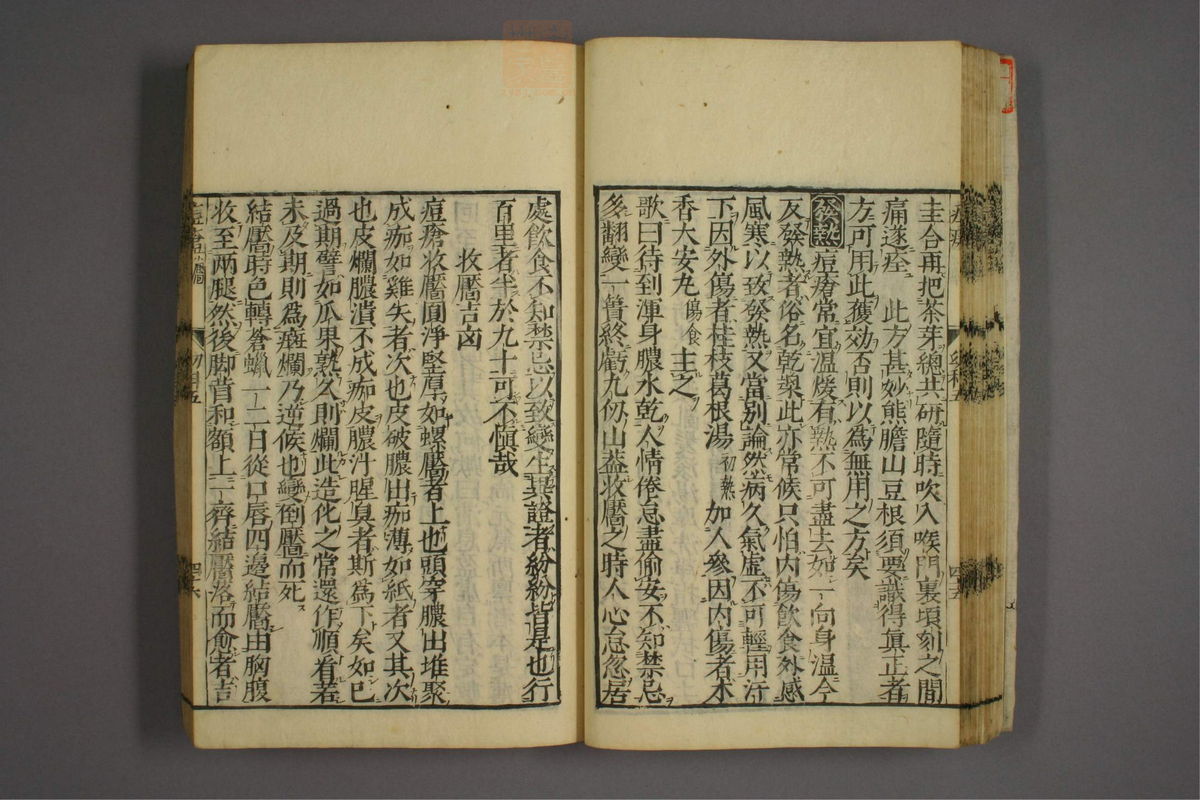 圭合再把茶芽總共研隨時吹入喉門裏頃刻之間
痛遂痊　此方甚妙熊膽山豆根須要識得眞正者
方可用此獲効否則以爲無用之方矣
發熱痘瘡常宜溫煖有熱不可盡去如一向身溫今
反發熱者俗名乾𤍠此亦常候只怕内傷飲食外感
風寒以致發熱又當別論然病久氣虛不可輕用汗
下因外傷者桂枝葛根湯初熱加人參因内傷者木
香大安丸傷食主之
歌曰待到渾身膿水乾人情倦怠盡偷安不知禁忌
多翻變一簣終虧九仞山葢收靨之時人心怠忽居
處飲食不知禁忌以致變生異證者紛紛皆是也行
百里者半於九十可不愼哉
收靨吉凶
痘瘡收靨圓淨堅厚如螺靨者上也頭穿膿出堆聚
成痂如雞失者次也皮破膿出痂薄如紙者又其次
也皮爛膿潰不成痂皮膿汁腥臭者斯爲下矣如已
過期譬如瓜果熟久則爛此造化之常還作順看若
未及期則爲斑爛乃逆候也變倒靨而死
結靨時色轉蒼蠟一二日從口唇四邊結靨由胸腹
收至兩腿然後脚背和額上一齊結靨落而愈者吉